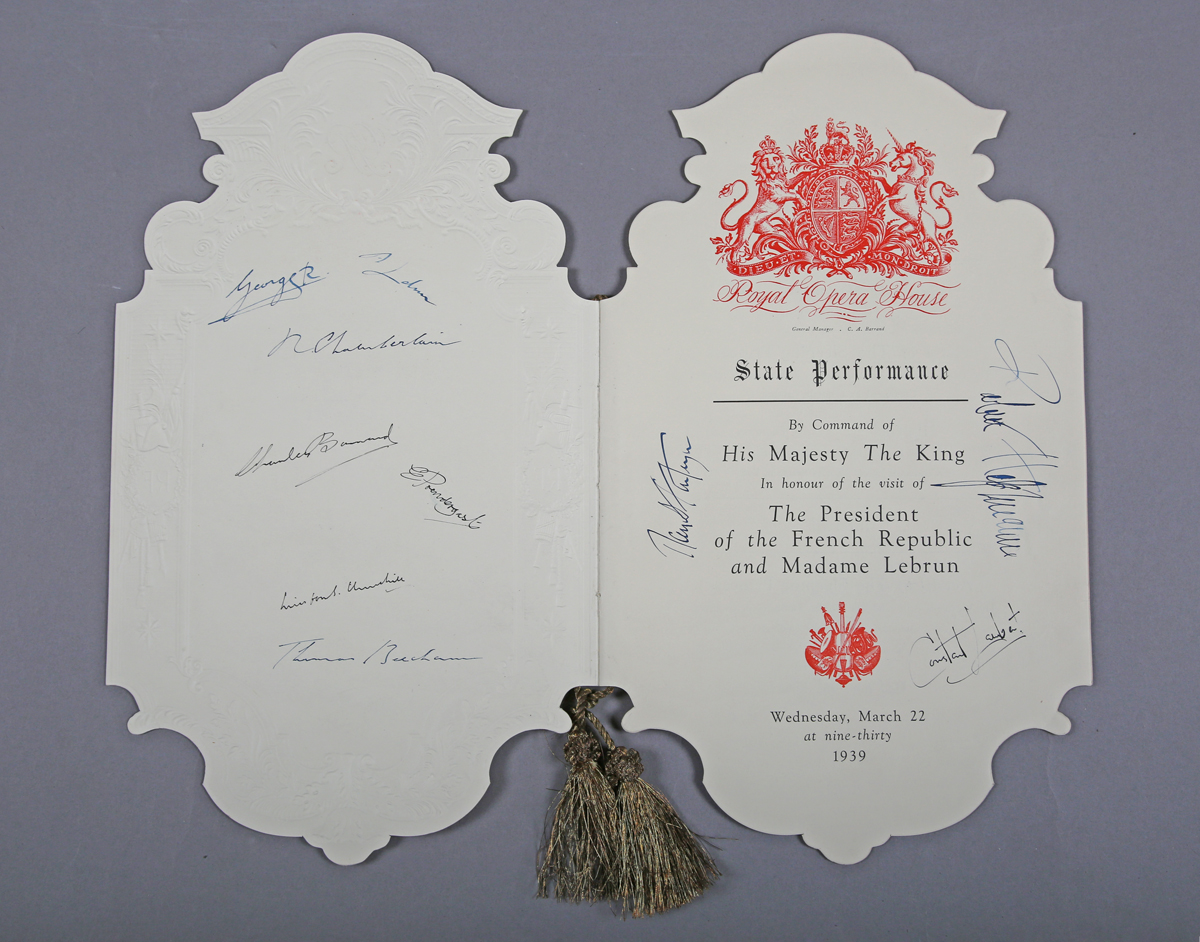 George R.
N Chamberlain
Charles Barrand
E Prendergast
Winston S. Churchill
Thomas Beecham
DIEU ET MON DROIT
Royal Opera House
General Manager . C. A. Barrand
State Performance
By Command of
His Majesty The King
In honour of the visit of
The President
of the French Republic
and Madame Lebrun
Robert Helpmann
Constant Lambert
Wednesday, March 22
at nine-thirty
1939